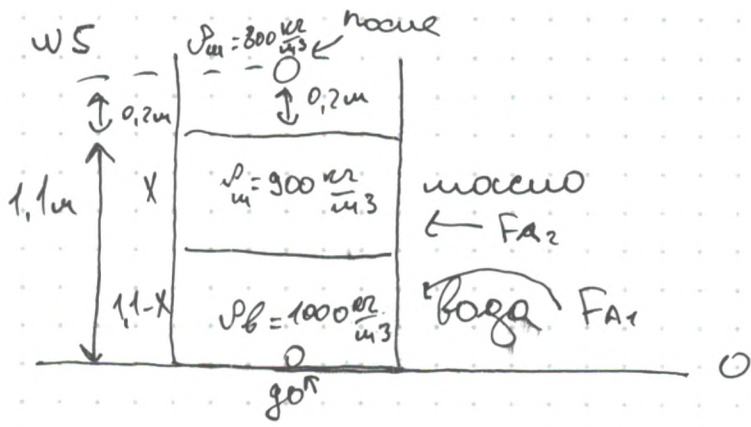 №5 ρш = 800 кг/м3 после
0,2м 0,2м
1,1м x ρм = 900 кг/м3 масло
← FA2
1,1-x ρв = 1000 кг/м3 вода FA1
0
до↑